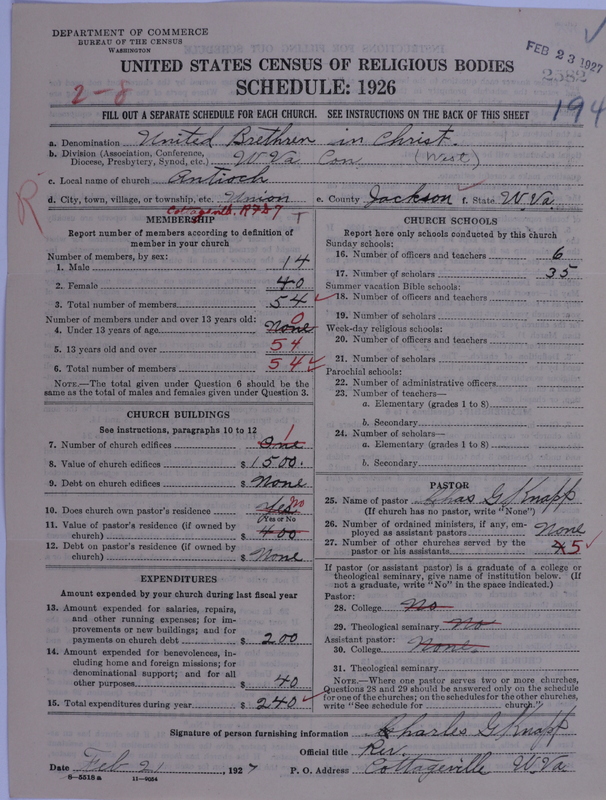 DEPARTMENT OF COMMERCE
BUREAU OF THE CENSUS
WASHINGTON
FEB 23 1927
2582
UNITED STATES CENSUS OF RELIGIOUS BODIES
SCHEDULE: 1926
2-8
194
FILL OUT A SEPARATE SCHEDULE FOR EACH CHURCH. SEE INSTRUCTIONS ON THE BACK OF THIS SHEET
a. Denomination United Brethren in Christ.
b. Division (Association, Conference, Diocese, Presbytery, Synod, etc.) W Va Con (West)
c. Local name of church Antioch
d. City, town, village, or township, etc. Union e. County Jackson f. State W. Va.
Cottageville, RFD 7
MEMBERSHIP
Report number of members according to definition of
member in your church
Number of members, by sex:
1. Male 14
2. Female 40
3. Total number of members 54
Number of members under and over 13 years old: 0
4. Under 13 years of age None
5. 13 years old and over 54
6. Total number of members 54
NOTE.—The total given under Question 6 should be the
same as the total of males and females given under Question 3.
CHURCH BUILDINGS
See instructions, paragraphs 10 to 12
7. Number of church edifices One 1
8. Value of church edifices $ 1500.
9. Debt on church edifices $ None
10. Does church own pastor's residence Yes No
(Yes or No)
11. Value of pastor's residence (if owned by
church) $ 400
12. Debt on pastor's residence (if owned by
church) $ None
EXPENDITURES
Amount expended by your church during last fiscal year
13. Amount expended for salaries, repairs,
and other running expenses; for im-
provements or new buildings; and for
payments on church debt $ 200
14. Amount expended for benevolences, in-
cluding home and foreign missions; for
denominational support; and for all
other purposes $ 40
15. Total expenditures during year $ 240
CHURCH SCHOOLS
Report here only schools conducted by this church
Sunday schools:
16. Number of officers and teachers 6
17. Number of scholars 35
Summer vacation Bible schools:
18. Number of officers and teachers
19. Number of scholars
Week-day religious schools:
20. Number of officers and teachers
21. Number of scholars
Parochial schools:
22. Number of administrative officers
23. Number of teachers—
a. Elementary (grades 1 to 8)
b. Secondary
24. Number of scholars—
a. Elementary (grades 1 to 8)
b. Secondary
PASTOR
25. Name of pastor Chas G Knapp
(If church has no pastor, write "None")
26. Number of ordained ministers, if any, em-
ployed as assistant pastors None
27. Number of other churches served by the
pastor or his assistants 5
If pastor (or assistant pastor) is a graduate of a college or
theological seminary, give name of institution below. (If
not a graduate, write "No" in the space indicated.)
Pastor:
28. College No
29. Theological seminary No
Assistant pastor:
30. College None
31. Theological seminary
NOTE.—Where one pastor serves two or more churches,
Questions 28 and 29 should be answered only on the schedule
for one of the churches; on the schedules for the other churches,
write "See schedule for church."
Signature of person furnishing information Charles G Knapp
Official title Rev.
Date Feb 21, 1927 P. O. Address Cottageville W Va
8-5518a 11-9054